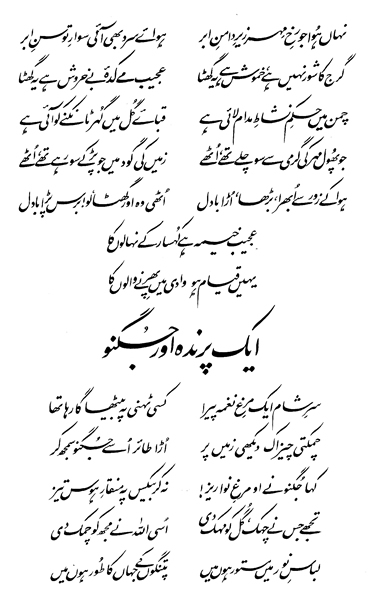 نہاں ہوا جو رخِ مہر زیرِ دامنِ ابر ہوائے سرد بھی آئی سوارِ توسنِ ابر
گرج کا شور نہیں ہے، خموش ہے یہ گھٹا عجیب مے کدۂ بے خروش ہے یہ گھٹا
چمن میں حکمِ نشاطِ مدام لائی ہے قبائے گل میں گہر ٹانکنے کو آئی ہے
جو پھول مہر کی گرمی سے سو چلے تھے، اٹھے زمیں کی گود میں جو پڑ کے سو رہے تھے، اٹھے
ہوا کے زور سے ابھرا، بڑھا، اڑا بادل اٹھی وہ اور گھٹا، لو! برس پڑا بادل
عجیب خیمہ ہے کہسار کے نہالوں کا
یہیں قیام ہو وادی میں پھرنے والوں کا
ایک پرندہ اور جگنو
سرِ شام ایک مرغِ نغمہ پیرا کسی ٹہنی پہ بیٹھا گا رہا تھا
چمکتی چیز اک دیکھی زمیں پر اڑا طائر اسے جگنو سمجھ کر
کہا جگنو نے او مرغِ نوا ریز! نہ کر بیکس پہ منقارِ ہوس تیز
تجھے جس نے چہک، گل کو مہک دی اسی اللہ نے مجھ کو چمک دی
لباسِ نور میں مستور ہوں میں پتنگوں کے جہاں کا طور ہوں میں